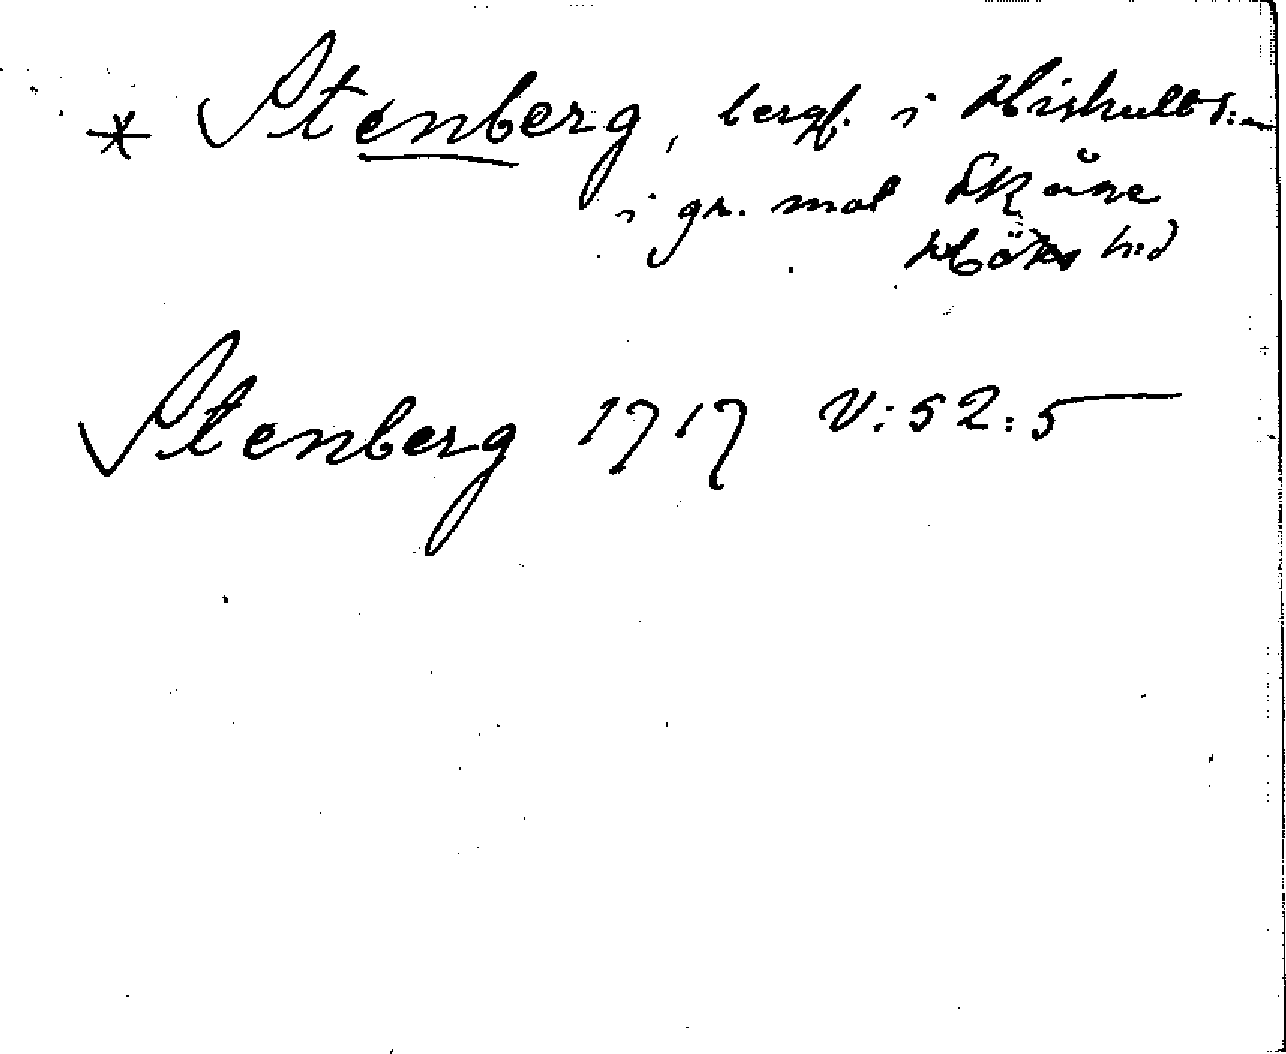 * Stenberg, bergf. i Hishults s:n
i gr. mot Skåne
Höks hd
Stenberg 1717 V:52:5